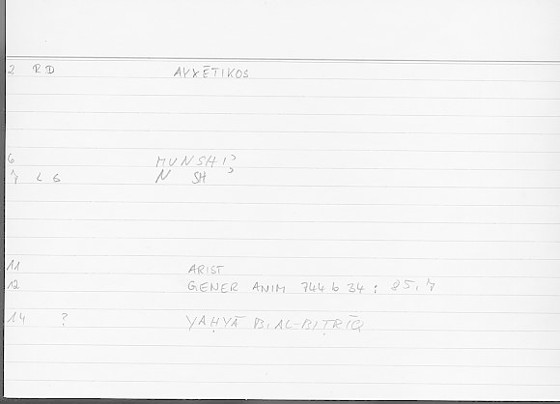 2 RD AYXĒTIKOS
6 MUNSHIʾ
7 L G N SHʾ
11 ARIST
12 GENER ANIM 744 b 34 : 85,7
14 ? YAḤYĀ B. AL-BIṬRĪQ